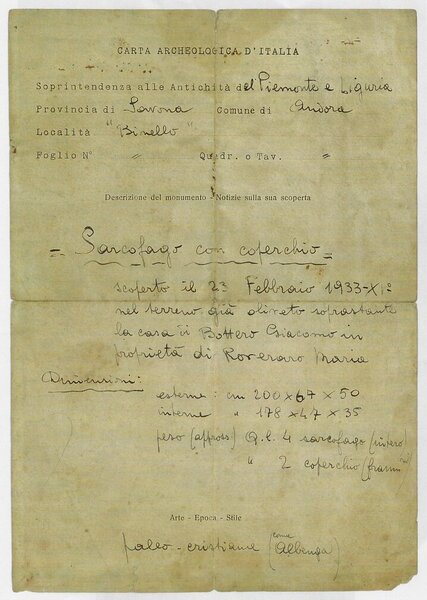 CARTA ARCHEOLOGICA D'ITALIA
Soprintendenza alle Antichità del Piemonte e Liguria
Provincia di Savona Comune di Andora
Località "Binello"
Foglio N° " Quadr. o Tav. "
Descrizione del monumento - Notizie sulla sua scoperta
- Sarcofago con coperchio -
scoperto il 23 Febbraio 1933-XI°
nel terreno già oliveto soprastante
la casa di Bottero Giacomo in
proprietà di Roveraro Maria
Dimensioni:
esterne: cm 200 x 67 x 50
interne " 178 x 47 x 35
peso (appross) Q.li 4 sarcofago (intero)
" 2 coperchio
Arte - Epoca - Stile
paleo-cristiana (come Albenga)